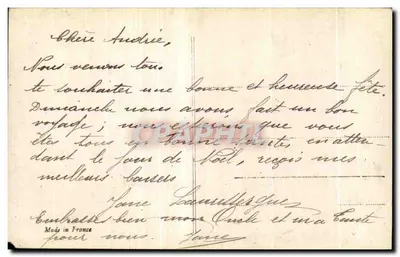 Chère Andrée,
Nous venons tous
te souhaiter une bonne et heureuse fête.
Dimanche nous avons fait un bon
voyage; nous que vous
êtes tous en bonne santé en atten-
dant le jour de Noël, reçois mes
meilleurs baisers
Jane
Embrasse bien mon Oncle et ma Tante
Made in France
pour nous. Jane